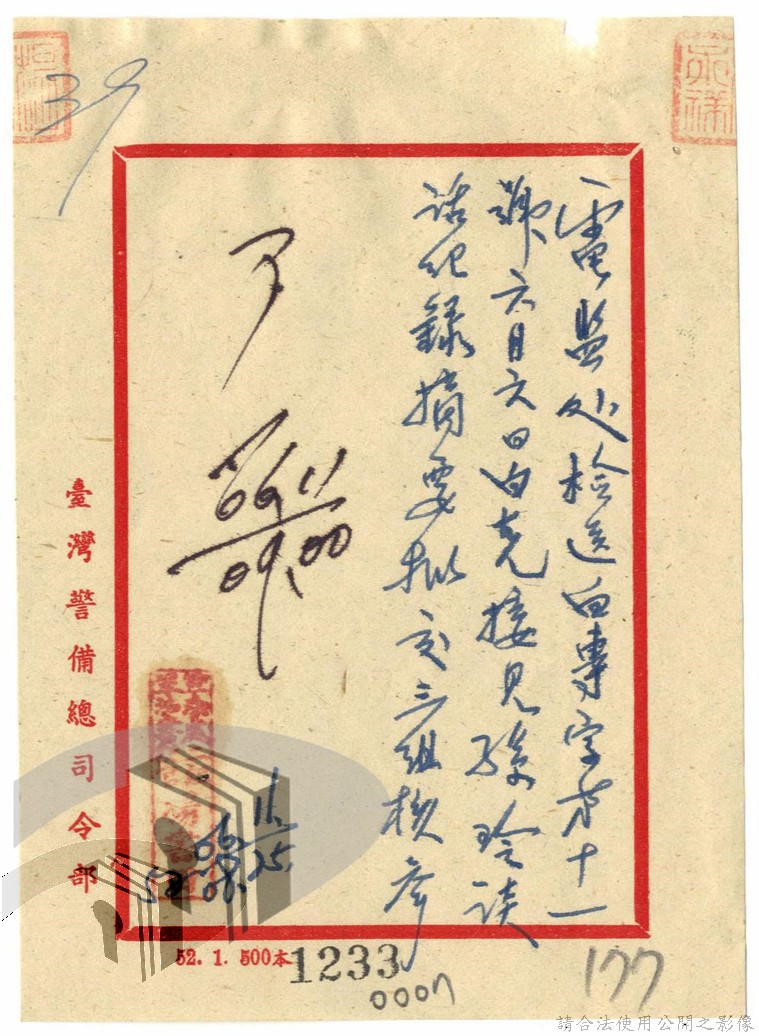 39
電監处检送白專字第十一
號六月六日白克接見孫玲談
話纪錄摘要批交三組核參
了
06 11
09.00
臺灣警備總司令部
06 11
08.25
52. 1. 500本
1233
0007
177
請合法使用公開之影像